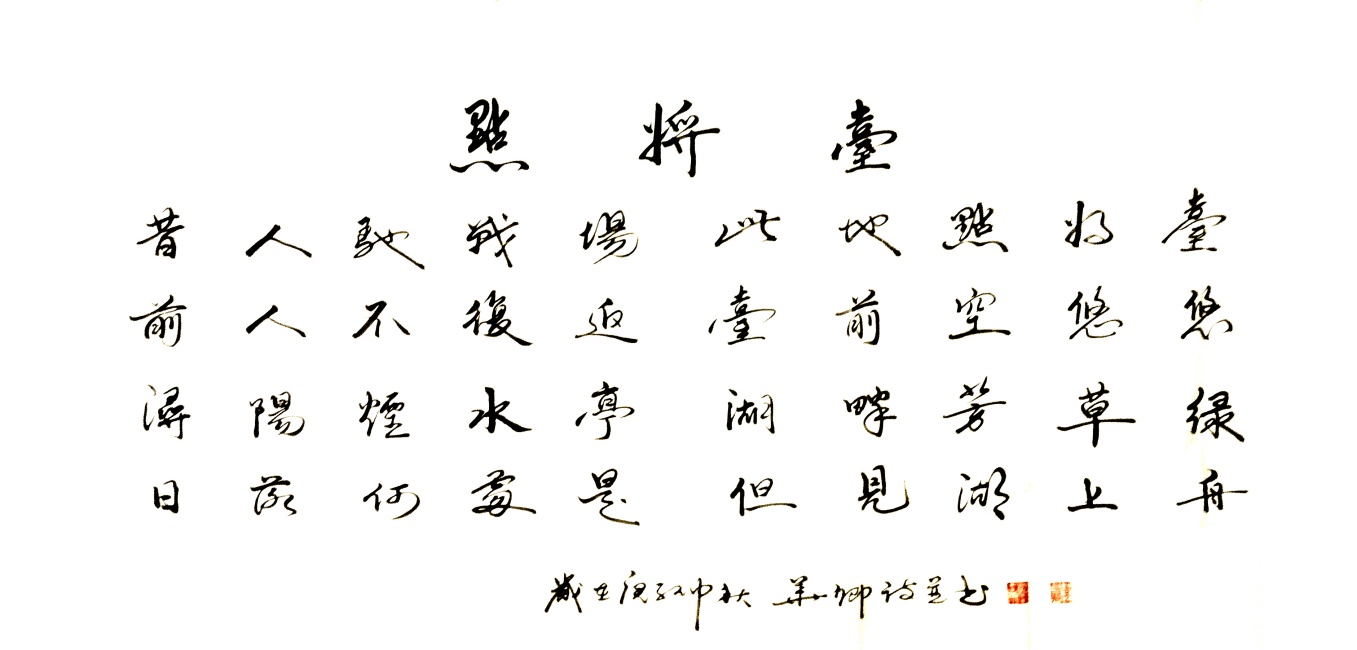 點將臺
昔人馳戰場 此地點將臺
前人不復返 臺前空悠悠
潯陽煙水亭 湖畔芳草绿
日何處是 但見湖上舟
歲在中秋 華卿詩並书